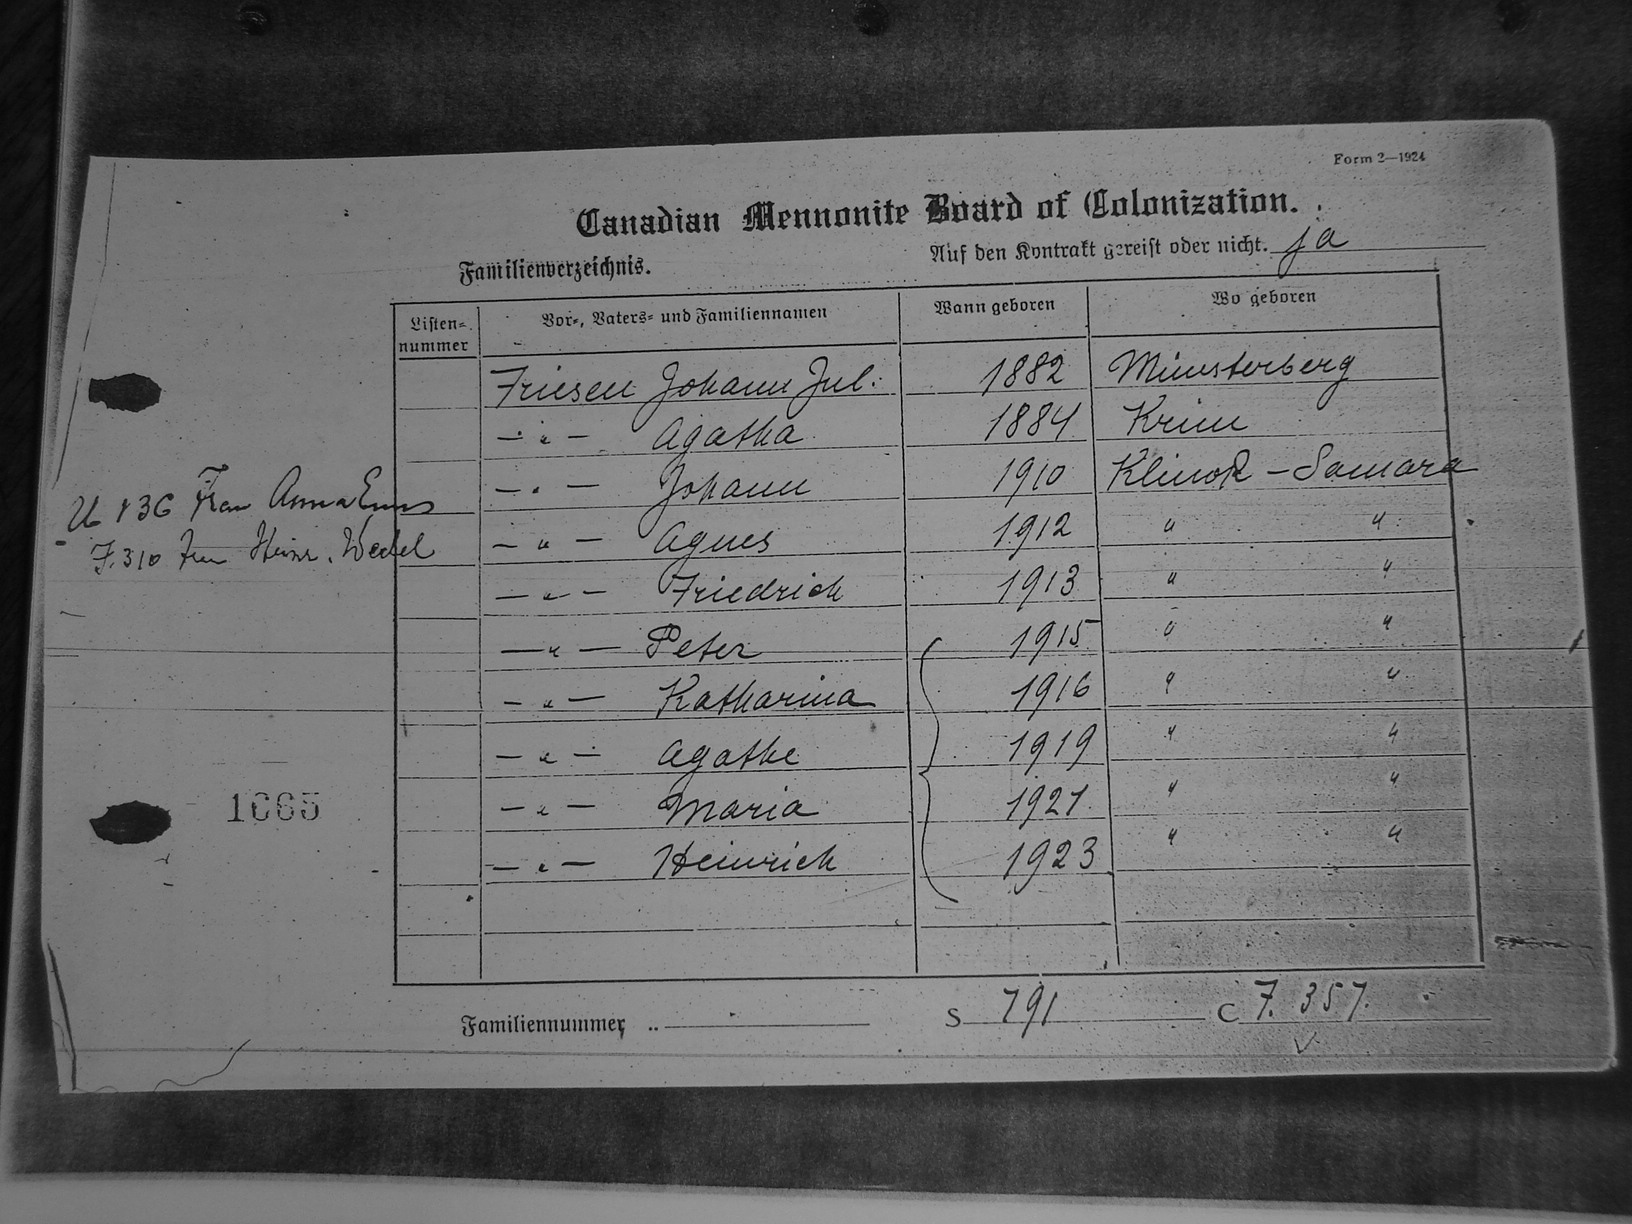 Form 2—1924
Canadian Mennonite Board of Colonization.
Auf den Kontrakt gereist oder nicht. ja
Familienverzeichnis.
Listen-nummer Vor-, Vaters- und Familiennamen Wann geboren Wo geboren
Friesen Johann Jul. 1882 Münsterberg
— " — Agatha 1884 Krim
— " — Johann 1910 Klinok - Samara
— " — Agnes 1912 " "
— " — Friedrich 1913 " "
— " — Peter 1915 " "
— " — Katharina 1916 " "
— " — Agathe 1919 " "
— " — Maria 1921 " "
— " — Heinrich 1923 " "
136 Frau Anna Enns
F. 310 Heinr. Wedel
1665
Familiennummer S 791 C F. 357.